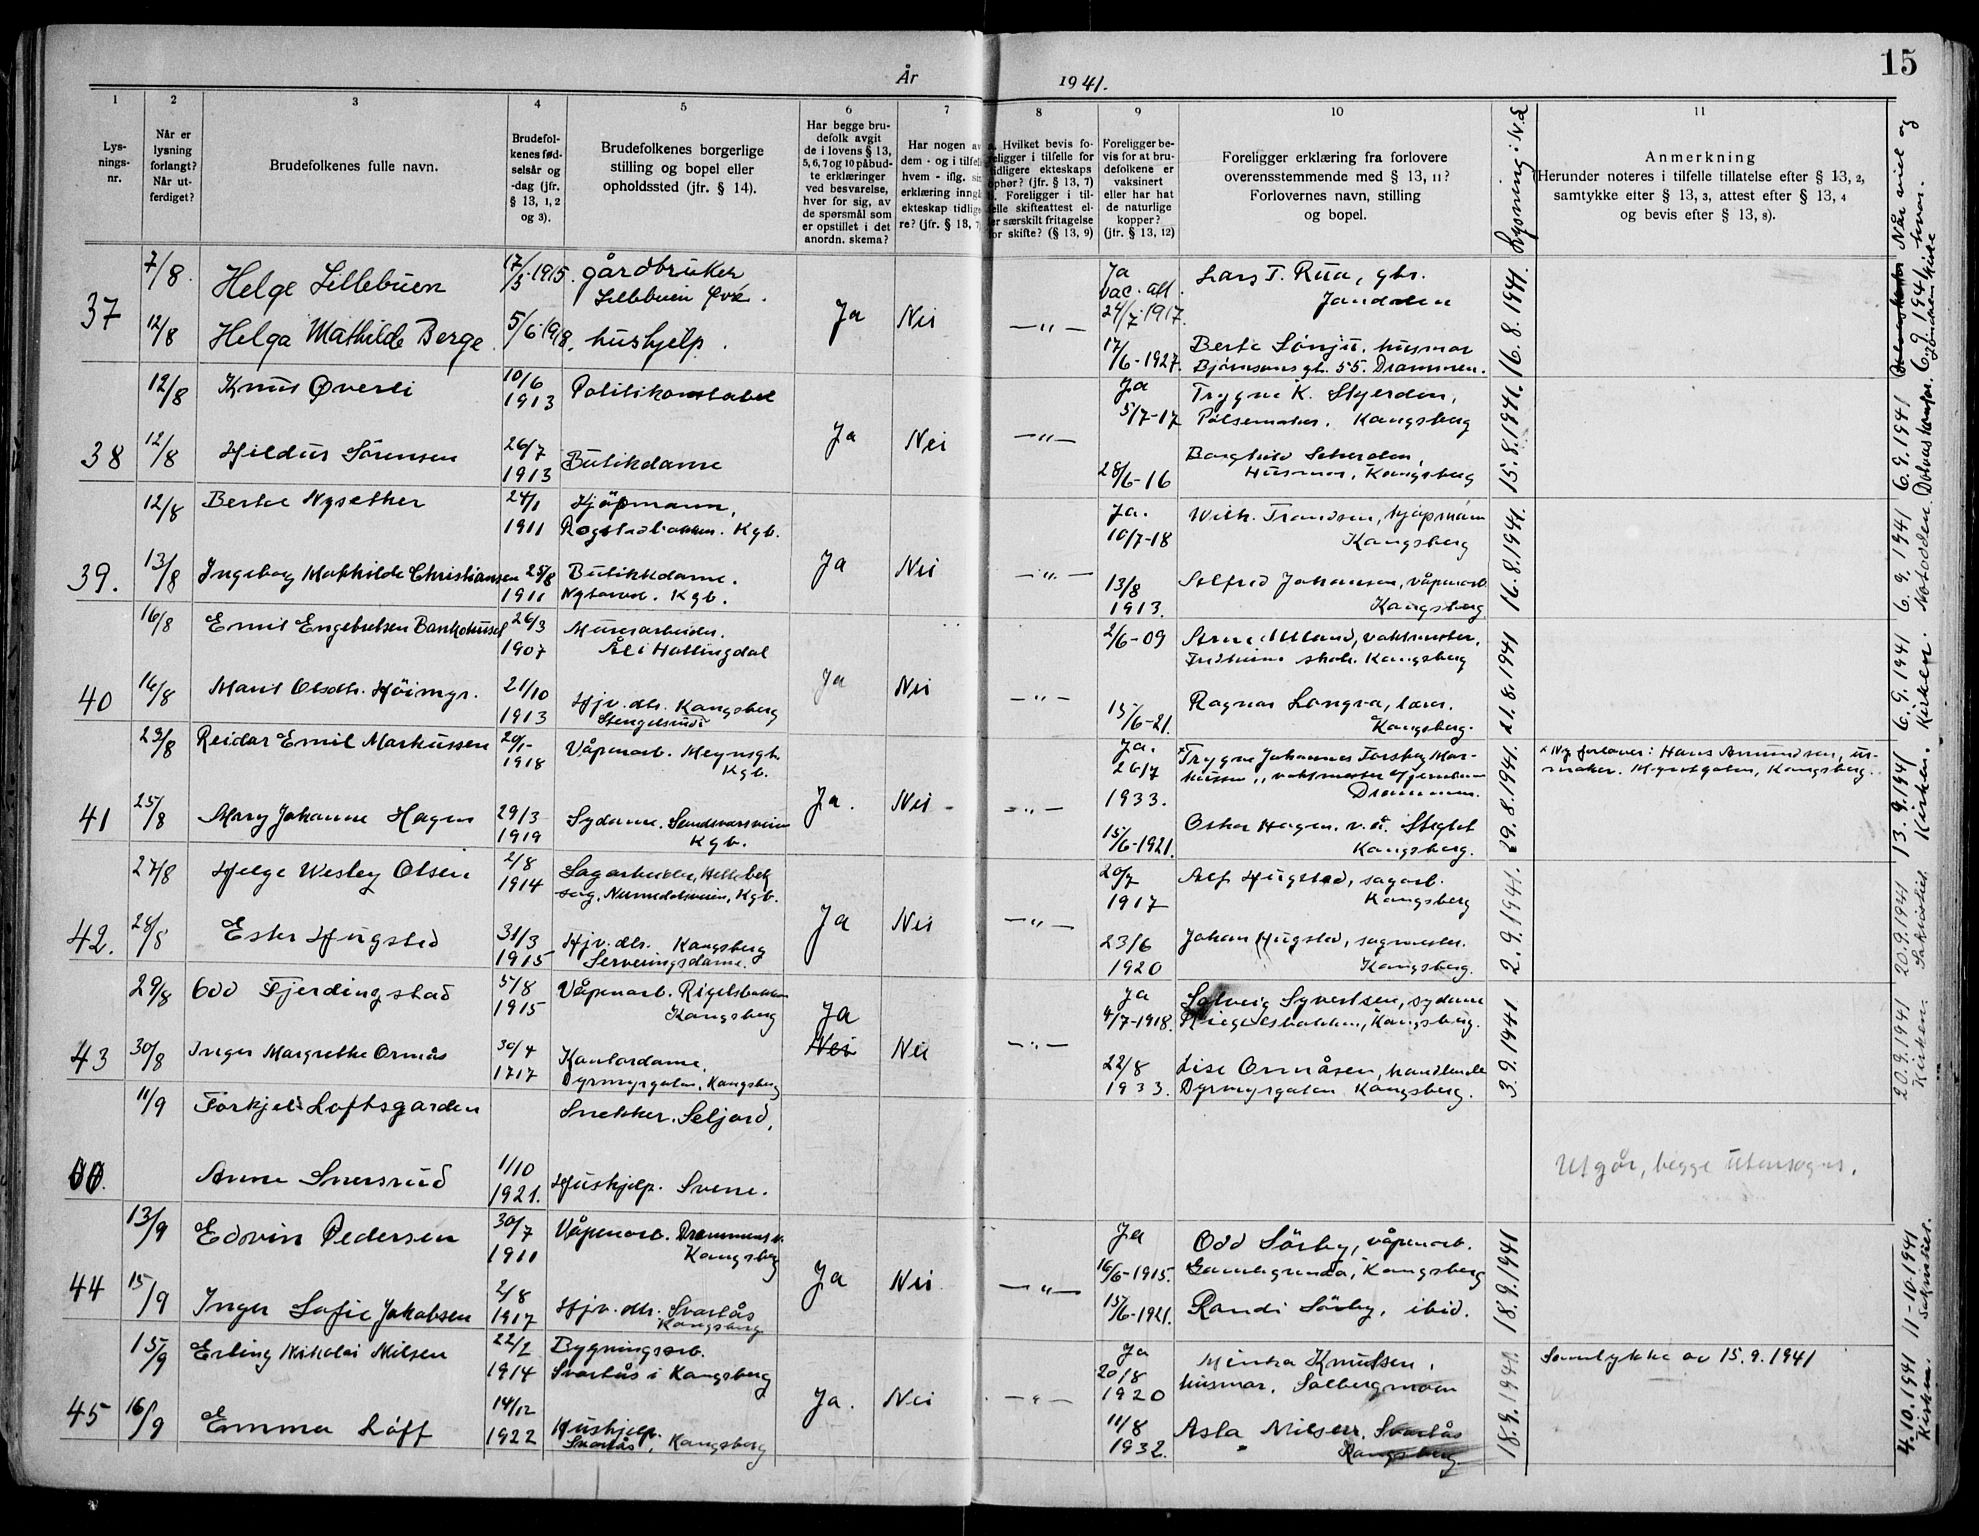 År 1941.
15
1
2
3
4
5
6
7
8
9
10
11
Lys-
nings-
nr.
Når er
lysning
forlangt?
Når ut-
ferdiget?
Brudefolkenes fulle navn.
Brudefol-
kenes fød-
selsår og
-dag (jfr.
§ 13, 1, 2
og 3).
Brudefolkenes borgerlige
stilling og bopel eller
opholdssted (jfr. § 14).
Har begge bru-
defolk avgit
de i lovens § 13,
5, 6, 7 og 10 påbud-
te erklæringer
ved besvarelse,
hver for sig, av
de spørsmål som
er opstillet i det
anordn. skema?
Har nogen av
dem - og i tilfelle
hvem - iflg. sin
erklæring inngå
ekteskap tidlige
re? (jfr. § 13, 7
a. Hvilket bevis fo-
religger i tilfelle for
tidligere ekteskaps
ophør? (jfr. § 13, 7)
b. Foreligger i til-
felle skifteattest el-
ler særskilt fritagelse
for skifte? (§ 13, 9)
Foreligger be-
vis for at bru-
defolkene er
vaksinert
eller har hat
de naturlige
kopper?
(jfr. § 13, 12)
Foreligger erklæring fra forlovere
overensstemmende med § 13, 11?
Forlovernes navn, stilling
og bopel.
Lysning i N.L
Anmerkning
Herunder noteres i tilfelle tillatelse efter § 13, 2,
samtykke efter § 13, 3, attest efter § 13, 4
og bevis efter § 13, 8).
Når viet og
hvor.
37
7/8. Helge Lillebuen 17/3-1915. gårdbruker
Lillebuen Øvre.
12/8 Helga Mathilde Berge. 5/6-1918. hushjelp.
Ja Nei —"—
Ja
vac. att.
24/7-1917.
Lars T. Rua, gbr.
Jondalen
17/6-1927. Berte Lønju, husmor
Bjørnsons gt. 55. Drammen.
16.8.1941.
6.9.1941
Jondalen Kirke
38
12/8 Knut Øverli 10/6 1913 Politikonstabel
12/8 Hildur Sørensen 26/7 1913 Butikdame
Ja Nei —"—
Ja
5/7-17 Trygve K. Stjerden,
Pølsemaker. Kongsberg
28/6-16 Borghild Stjerden,
Husmor, Kongsberg
15.8.1941.
6.9.1941
39.
12/8 Berte Nysether 24/1 1911 Kjøpmann,
Rogstadbakken. Kgb.
13/8 Ingeborg Mathilde Christiansen 25/8 1911 Butikkdame.
Nytorvet. Kgb.
Ja Nei —"—
Ja.
10/7-18 Wilh. Frandsen, kjøpmann
Kongsberg
13/8
1913. Alfred Johansen, våpenarb.
Kongsberg
16.8.1941.
6.9.1941
Notodden
40
16/8 Emil Engebretsen Bankohusel 26/3 1907 Murerarbeider.
Ål i Hallingdal
16/8 Marit Olsdtr. Høimyr. 21/10 1913 Hjv. dtr. Kongsberg
Stengelsrud
Ja Nei —"—
2/6-09 Arne Ulland, vaktmester,
Fridheim skole. Kongsberg
15/6-21. Ragnar Longva, lærer.
Kongsberg.
21.8.1941
6.9.1941
Kirken.
41
23/8 Reidar Emil Markussen 20/1-1918 Våpenarb. Meynsgt.
Kgb.
25/8 Mary Johanne Hagen 29/3-1919 Sydame. Sandsværsveien
Kgb.
Ja. Nei - —"—
Ja.
26/7
1933. x Trygve Johannes Forsberg Mar-
kussen, vaktmester Gjernbanen
Drammen.
15/6-1921. Oskar Hagen. v.a. Steglet
Kongsberg.
29.8.1941.
x Ny forlover: Hans Amundsen, ur-
maker. Myntgaten, Kongsberg.
13.9.1941
Kirken.
42.
27/8 Helge Wesley Olsen 2/8 1914 Sagarbeider, Hellebek
sag, Numedalsveien, Kgb.
28/8 Ester Hugsted 31/3 1915 Hjv. dtr. Kongsberg
Serveringsdame.
Ja Nei —"—
20/7
1917 Alf Hugsted, sagarb.
Kongsberg
23/6
1920 Johan Hugsted, sagmester.
Kongsberg.
2.9.1941.
20.9.1941
Sakristiet.
43
29/8 Odd Fjerdingstad 5/8 1915 Våpenarb. Rigelsbakken
Kongsberg
30/8 Inger Margrethe Ormås 30/4 1917 Kontordame.
Dyrmyrgaten, Kongsberg
Ja
Nei Nei —"—
Ja
4/7-1918. Solveig Syvertsen, sydame
Riegelsbakken, Kongsberg.
22/8
1933. Lise Ormåsen, handlende
Dyrmyrgaten Kongsberg.
3.9.1941
20.9.1941
Kirken
11/9 Torkjel Loftsgarden Snekker. Seljord,
Anne Snersrud 1/10 1921. Hushjelp. Svene.
Utgår, begge utensogns.
44
13/9 Edvin Pedersen 30/7 1911 Våpenarb. Drammens v.
Kongsberg
15/9 Inger Sofie Jakobsen 2/8 1917 Hjv. dtr. Svartås
Kongsberg
Ja Nei —"—
Ja
16/6-1915. Odd Sørby, våpenarb.
Gamlegrendå, Kongsberg
15/6-1921. Randi Sørby, ibid.
18.9.1941
11-10-1941
Sakristiet.
45
15/9 Erling Nikolai Nilsen 22/2 1914 Bygningsarb.
Svartås i Kongsberg
16/9 Emma Løff 14/12 1922 Hushjelp.
Svartås, Kongsberg
Ja. Nei —"—
Ja
20/8
1920 Minka Knutsen,
husmor, Solbergmoen
11/8
1932. Asla Nilsen, Svartås
Kongsberg.
18.9.1941.
Samtykke av 15.9.1941
4.10.1941
Kirken.